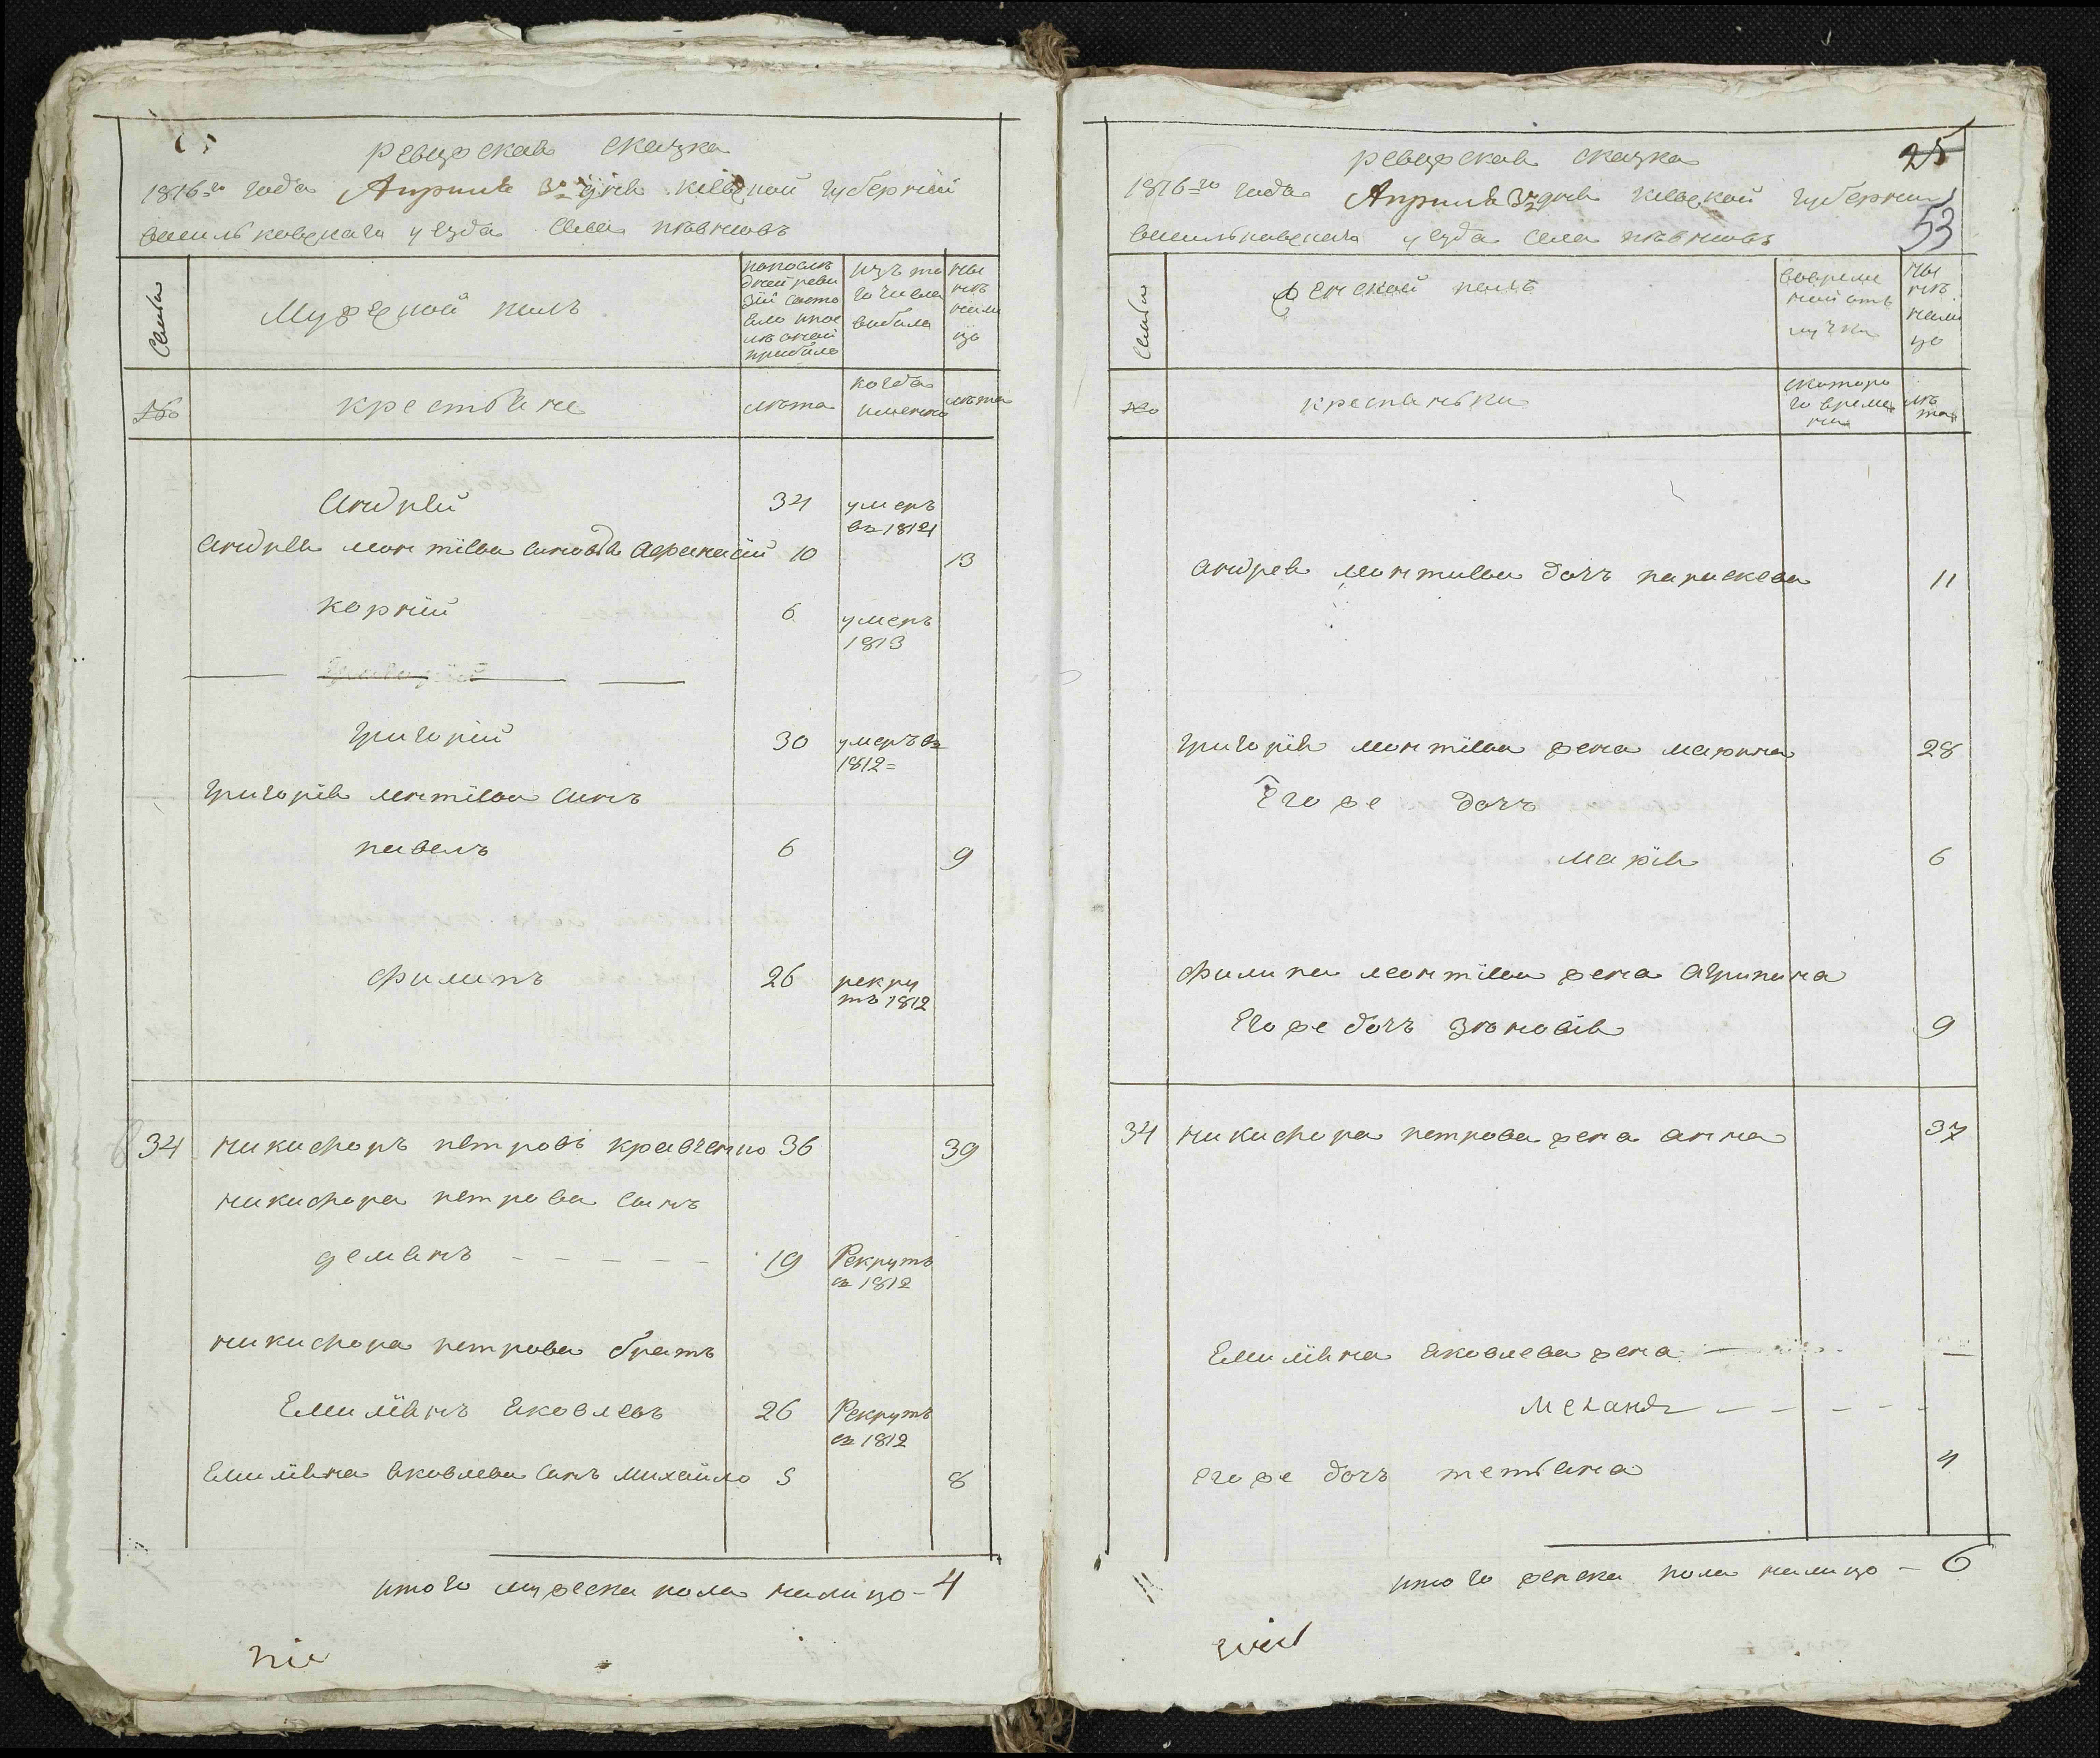 ревизская сказка
1816-го года Априля 30 дня киевской губернии
васильковскаго уезда села пъвновъ
Семьи
Мужеской полъ
попослѣ
дней реви
зіи состо
яло ипос
лѣ оной
прибыло
изъ то
го числа
выбыло
ны
нѣ
нали
цо
№
крестьяне
лѣта
когда
именно
лѣта
Андрей 34 умеръ
въ 1814
Андрея леонтіева Афанасій 10 13
корній 6 умеръ
1813
григорій 30 умеръ въ
1812
григорія леонтіева сынъ
павелъ 6 9
филипъ 26 рекру
тъ 1812
34 никифоръ петровъ кравченко 36 39
никифора петрова сынъ
демянъ 19 Рекрутъ
въ 1812
никифора петрова братъ
Емиліянъ яковлевъ 26 Рекрутъ
въ 1812
Емиліяна яковлева сынъ михайло 5 8
итого мужеска пола налицо - 4
25
53
ревизская сказка
1816-го года Априля 30 дня киевской губернии
васильковскаго уезда села пъвновъ
Семьи
Женской полъ
вовреме
нной отъ
лучки
ны
нѣ
нали
цо
№
крестьянки
скоторо
го време
ни
лѣ
та
андрея леонтиева дочъ параскева 11
григорія леонтіева жена марина 28
Его же дочъ
марія 6
филипа леонтіева жена агрипина
Его же дочъ зѣновія 9
34 никифора петрова жена анна 37
Емиліяна яковлева жена
меланія
его же дочъ тетьяна 4
итого женска пола налицо - 6